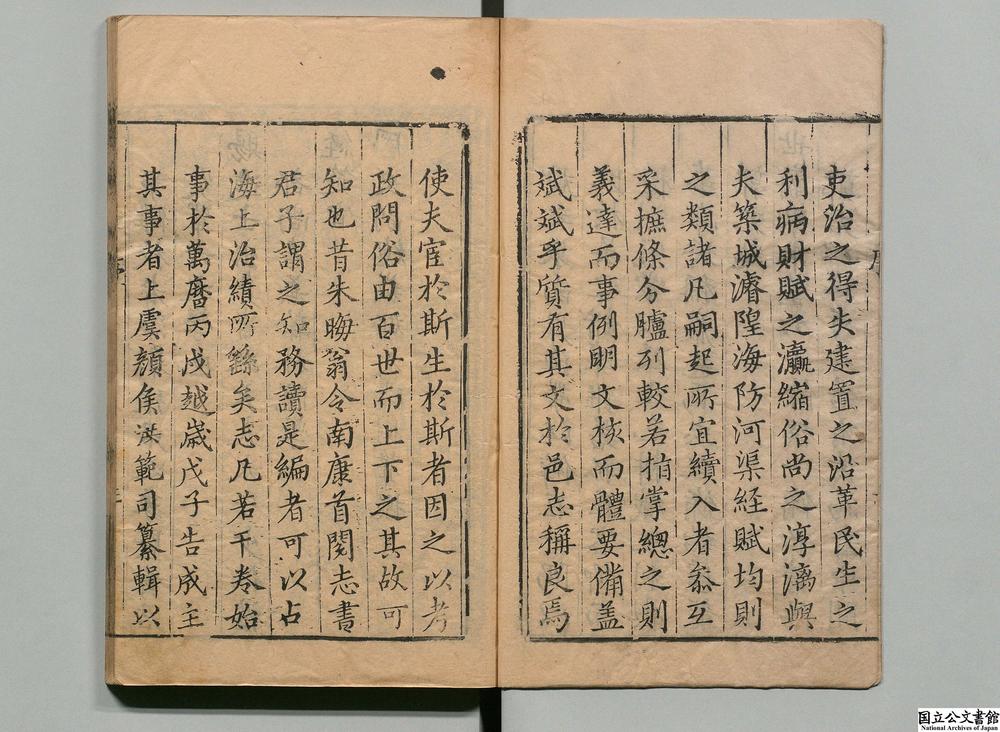 吏治之得失建置之沿革民生之
利病財賦之瀛縮俗尚之淳漓與
夫築城濬隍海防河渠経賦均則
之類諸凡嗣起所宜續入者叅互
采摭條分臚列較若指掌總之則
義達而事例明文核而體要備盖
斌斌乎質有其文於邑志稱良焉
使夫宦於斯生於斯者因之以考
政問俗由百世而上下之其故可
知也昔朱晦翁令南康首閱志書
君子謂之知務讀是編者可以占
海上治績所繇矣志凡若干卷始
事於萬曆丙戌越歲戊子告成主
其事者上虞顏侯洪範司纂輯以
国立公文書館
National Archives of Japan